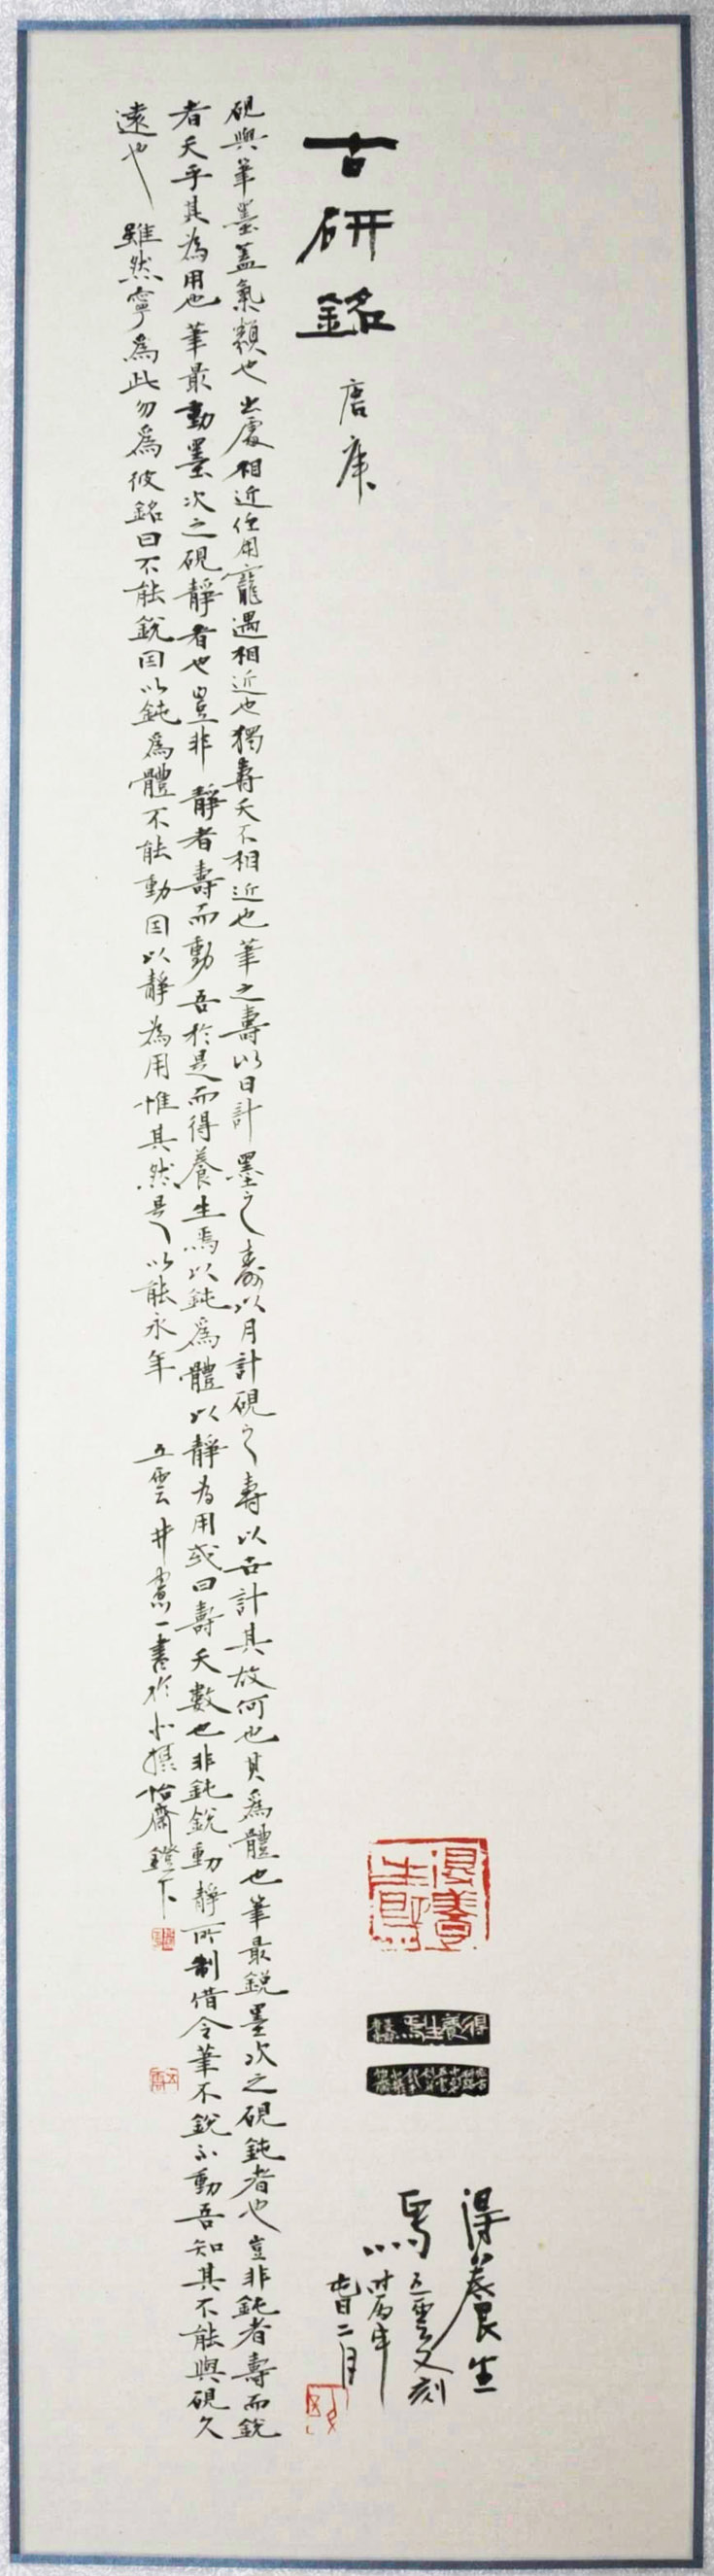 古研銘
唐庚
硯與筆墨蓋氣類也出處相近任用寵遇相近也獨壽夭不相近也筆之壽以日計墨之壽以月計硯之壽以世計其故何也其為體也筆最銳墨次之硯鈍者也豈非鈍者壽而銳
者夭乎其為用也筆最動墨次之硯靜者也豈非靜者壽而動吾於是而得養生焉以鈍為體以靜為用或曰壽夭數也非鈍銳動靜所制借令筆不銳不動吾知其不能與硯久
遠也雖然寧為此勿為彼銘曰不能銳因以鈍為體不能動因以靜為用惟其然是以能永年
五雲井 一書於小 怡齋鐙下
得養生焉
得養生焉
得養生
焉 五雲又刻
時
二月